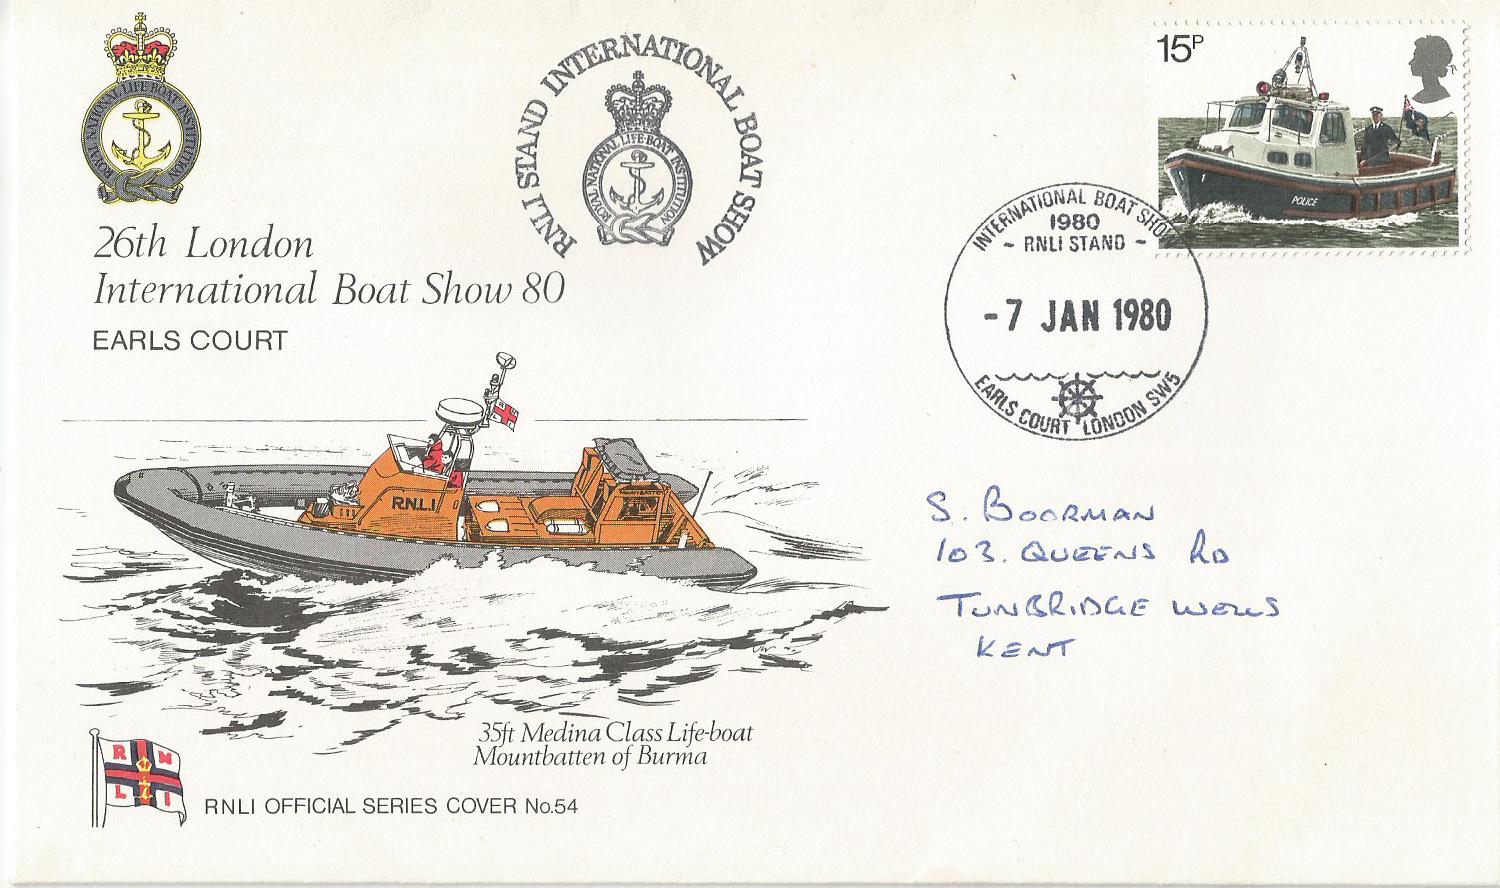 ROYAL NATIONAL LIFE-BOAT INSTITUTION
26th London
International Boat Show 80
EARLS COURT
RNLI STAND INTERNATIONAL BOAT SHOW
ROYAL NATIONAL LIFE-BOAT INSTITUTION
15P
POLICE
INTERNATIONAL BOAT SHOW
1980
- RNLI STAND -
-7 JAN 1980
EARLS COURT LONDON SW5
RNLI
S. BOORMAN
103. QUEENS RD
TUNBRIDGE WELLS
KENT
35ft Medina Class Life-boat
Mountbatten of Burma
R N
L I
RNLI OFFICIAL SERIES COVER No.54